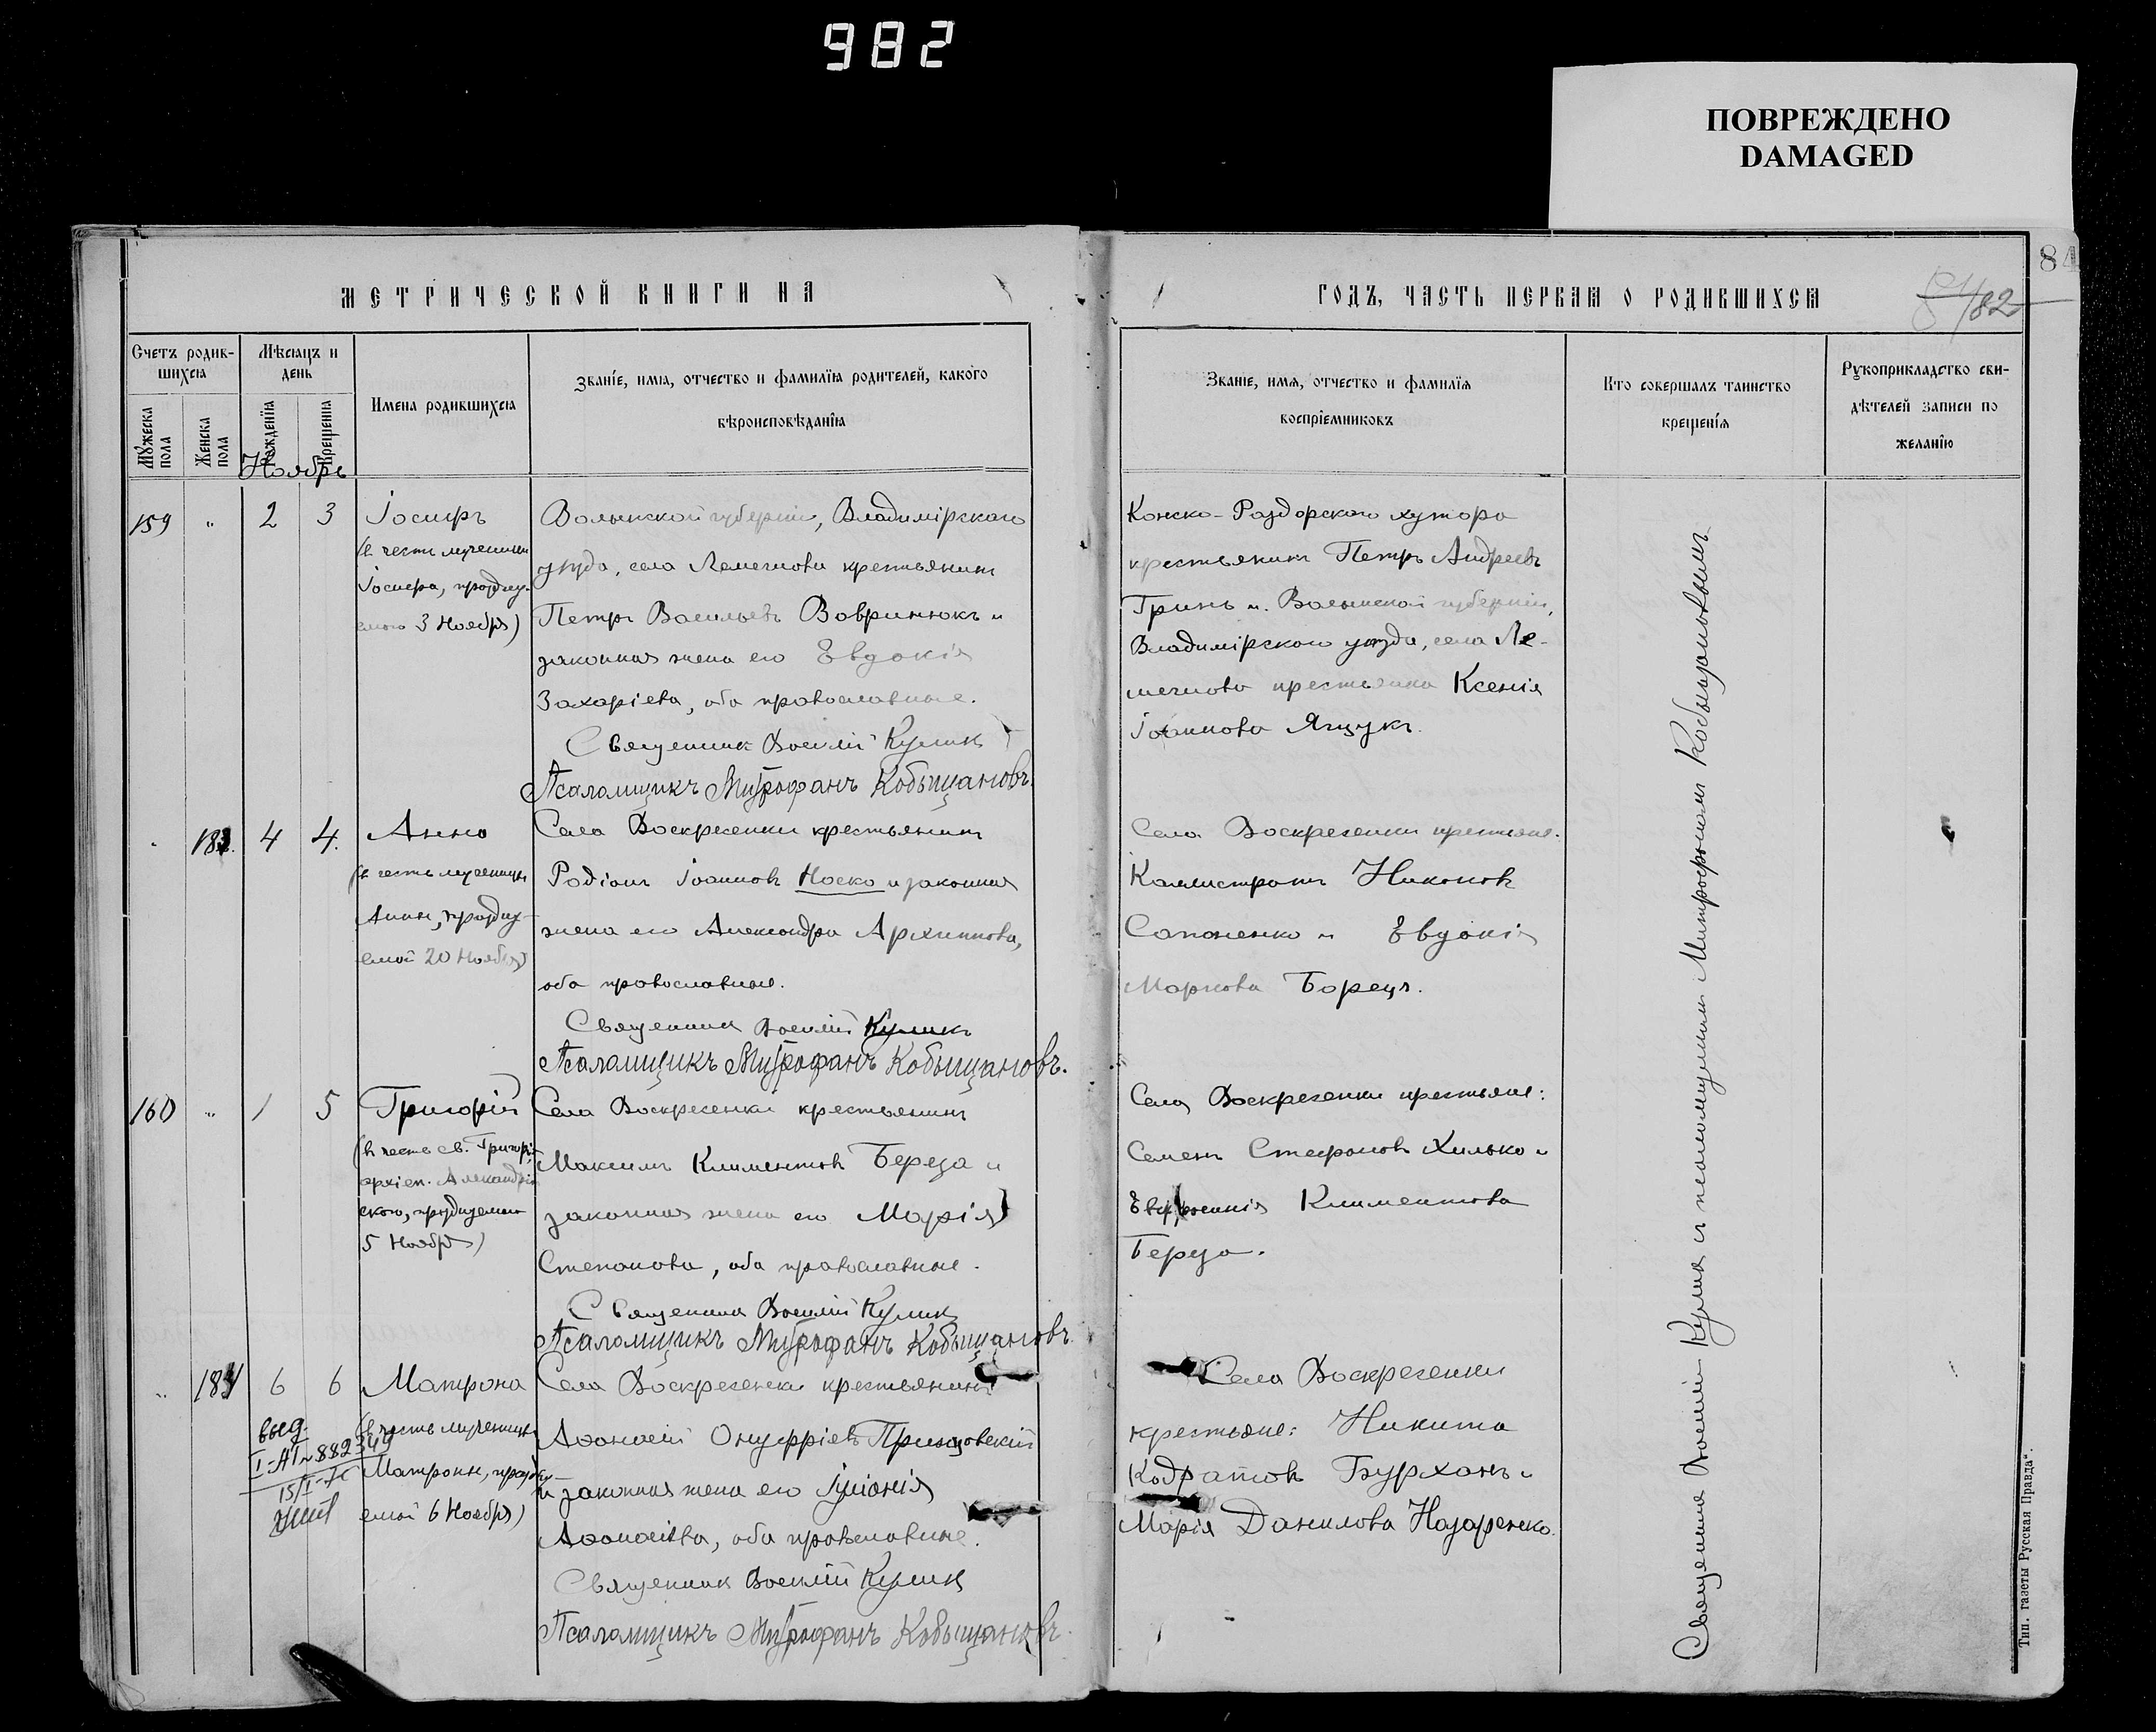 982
ПОВРЕЖДЕНО
DAMAGED
84
МЕТРИЧЕСКОЙ КНИГИ НА
ГОДЪ, ЧАСТЬ ПЕРВАЯ О РОДИВШИХСЯ
182
Счетъ родив-
шихся
Мѣсяцъ и
день
Имена родившихся
Званіе, имя, отчество и фамилія родителей, какого
вѣроисповѣданія
Мужеска пола
Женска пола
Рожденія
Крещенія
Званіе, имя, отчество и фамилія
воспріемниковъ
Кто совершалъ таинство
крещенія
Рукоприкладство сви-
дѣтелей записи по
желанію
Ноябрь
159 " 2 3
Іосифъ
(въ честь мученика
Іосифа, праздну-
емаго 3 Ноября)
Волынской губерніи, Владимірскаго
уѣзда, села крестьянинъ
Петръ Васильевъ Вавринюкъ и
законная жена его Евдокія
Захаріева, оба православные.
Священникъ Василій Куликъ
Псаломщикъ Митрофанъ Кобыщановъ.
Конско-Раздорскаго хутора
крестьянинъ Петръ Андреевъ
Гринь и Волынской губерніи,
Владимірскаго уѣзда, села Ле-
крестьянка Ксенія
Іоаннова Ящукъ.
183. 4 4.
Анна
(въ честь мученицы
Анны, праздну-
емой 20 Ноября)
Села Воскресенки крестьянинъ
Родіонъ Іоанновъ Носко и законная
жена его Александра Архиппова,
оба православные.
Священникъ Василій Куликъ
Псаломщикъ Митрофанъ Кобыщановъ.
Села Воскресенки крестьяне:
Каллистратъ Никоновъ
Сапоненко и Евдокія
Маркова Борецъ.
160 " 1 5
Григорій
(въ честь св. Григорія
архіеп. Александрій-
скаго, празднуемаго
5 Ноября)
Села Воскресенки крестьянинъ
Максимъ Климентовъ Береза и
законная жена его Марія
Степанова, оба православные.
Священникъ Василій Куликъ
Псаломщикъ Митрофанъ Кобыщановъ.
Села Воскресенки крестьяне:
Семенъ Стефановъ Хилько и
Евфросинія Климентова
Береза.
" 184 6 6
Матрона
(въ честь мученицы
Матроны, праздну-
емой 6 Ноября)
выд.
I-АП № 882349
15/I-
Села Воскресенки крестьянинъ
Аѳанасій Онуфріевъ
и законная жена его Іуліанія
Аѳанасіева, оба православные.
Священникъ Василій Куликъ
Псаломщикъ Митрофанъ Кобыщановъ.
Села Воскресенки
крестьяне: Никита
Кодратовъ Бурханъ и
Марія Данилова Назаренко.
Священникъ Василій Куликъ и псаломщикъ Митрофанъ Кобыщановъ
Тип. газеты Русская Правда".